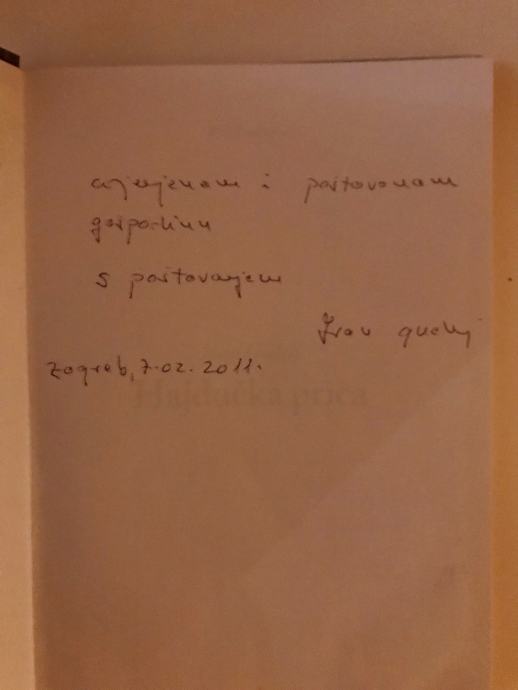 cijenjenom i poštovanom
gospodinu
s poštovanjem
Zagreb, 7.02.2011.
Hajdučka priča